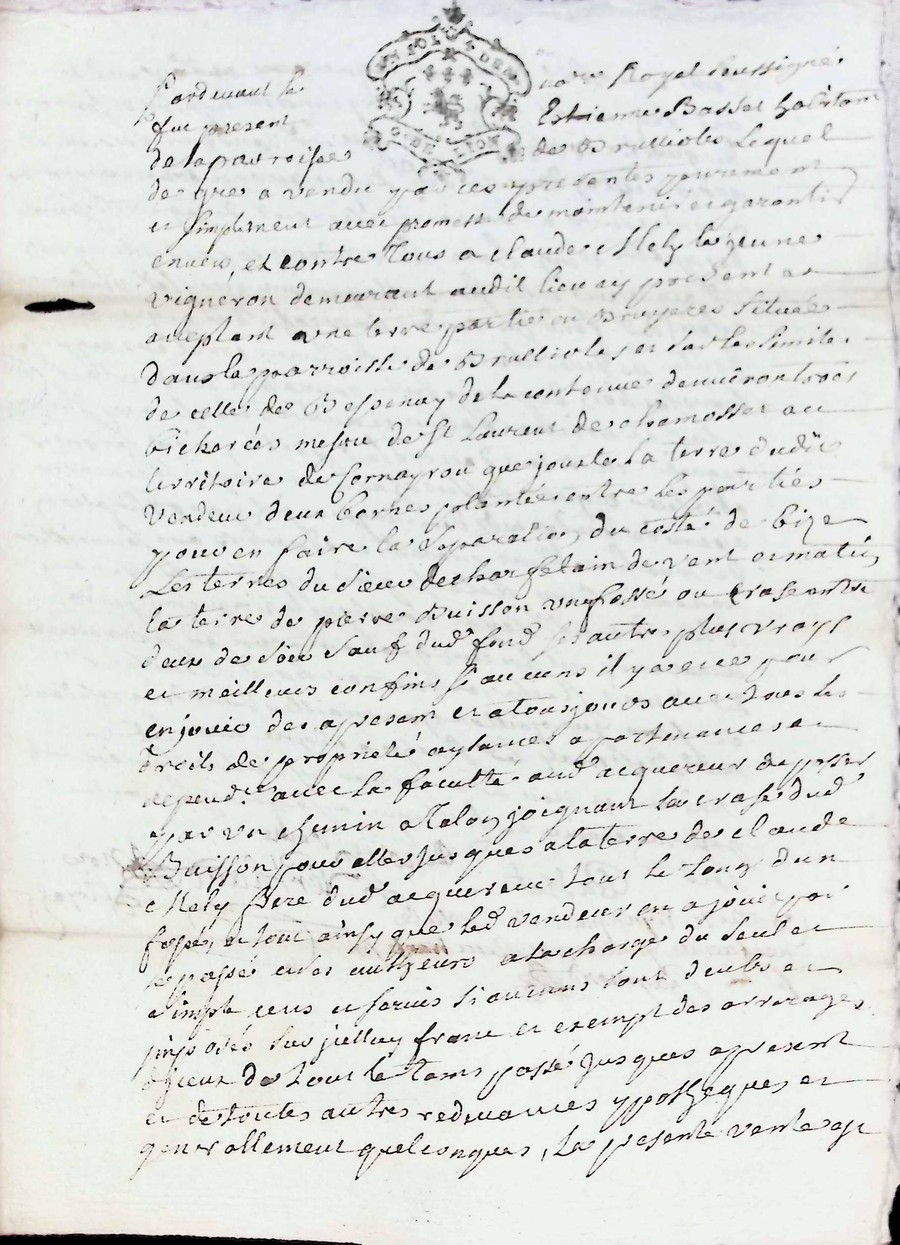 Pardevant le nore Royal soussigné
fut present Estienne Basset habitant
de la parroisse de Brullioles Lequel
de gré a vendu par ces presentes purement
et simplement avec promesse de maintenir et garantir
envers, et contre Tous a claude Mely le jeune
vigneron demeurant audit lieu ay present et
aceptant une terre partie en Bruyeres située
dans la parroisse de Brullioles et sur les limites
de celle de Bessenay de la contenue denviron trois
bicherées mesure de St Laurent de chamosset au
territoire de Cornayrou que jouste la terre dudit
vendeur deux bornes plantées entre les parties
pour en faire la separation du costé de bize
Les terres du sieur de chastelain de vent et matin,
la terre de pierre Buisson un fossé ou crase entre
deux de soir sauf dud fond ses autres plus vrays
et meilleurs confins si aucuns il y a et ce pour
en jouir des apresent et a tousjours avec tous les
droits de proprieté aysances apartenances et
depend. avec la faculté aud acquereur de passer
par un chemin a Talon joignant la crase dud
Buisson pour aller jusques a la terre de claude
Mely frere dud acquereur tout le long dun
fossé, et tout ainsy que led vendeur en a joui par
le passé et ses autheurs a la charge du seul et
simple cens et servis si aucuns sont deubs et
imposés sur jcelluy franc et exempt des arrerages
diceux de tout le tems passé jusques apresent
et de toutes autres redevances ypotheques et
generallement quelconques, La presente vente est